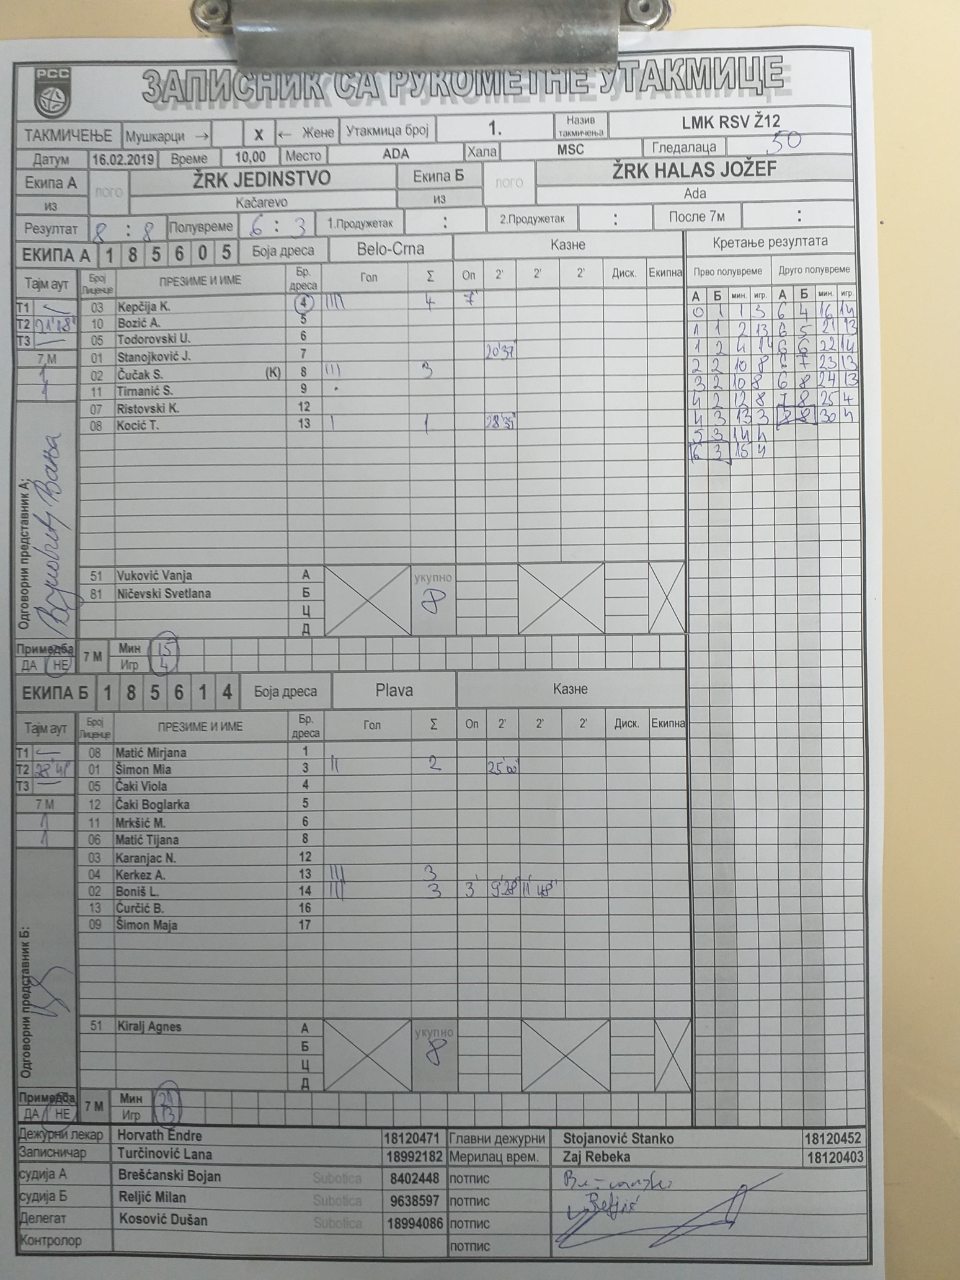 РСС
ЗАПИСНИК СА РУКОМЕТНЕ УТАКМИЦЕ
ТАКМИЧЕЊЕ Мушкарци → X ← Жене Утакмица број 1. Назив такмичења LMK RSV Ž12
Датум 16.02.2019 Време 10,00 Место ADA Хала MSC Гледалаца 50
Екипа А лого ŽRK JEDINSTVO Екипа Б лого ŽRK HALAS JOŽEF
из Kačarevo из Ada
Резултат 8 : 8 Полувреме 6 : 3 1.Продужетак : 2.Продужетак : После 7м :
ЕКИПА А 1 8 5 6 0 5 Боја дреса Belo-Crna Казне Кретање резултата
Тајм аут Број Лиценце ПРЕЗИМЕ И ИМЕ Бр. дреса Гол Σ Оп 2' 2' 2' Диск. Екипна Прво полувреме Друго полувреме
А Б мин. игр. А Б мин. игр.
Т1 03 Kepčija K. 4 IIII 4 7' 0 1 1 3 6 4 16 14
Т2 21'18" 10 Bozić A. 5 1 1 2 13 6 5 21 13
Т3 05 Todorovski U. 6 1 2 4 14 6 6 22 14
7 М 01 Stanojković J. 7 20'37 2 2 10 8 6 7 23 13
02 Čučak S. (K) 8 III 3 3 2 10 8 6 8 24 13
11 Tirnanić S. 9 4 2 12 8 7 8 25 4
07 Ristovski K. 12 4 3 13 3 8 8 30 4
08 Kocić T. 13 I 1 5 3 14 4
6 3 15 4
Одговорни представник А:
51 Vuković Vanja А укупно
81 Ničevski Svetlana Б 8
Ц
Д
Примедба ДА НЕ 7 М Мин 15
Игр 4
ЕКИПА Б 1 8 5 6 1 4 Боја дреса Plava Казне
Тајм аут Број Лиценце ПРЕЗИМЕ И ИМЕ Бр. дреса Гол Σ Оп 2' 2' 2' Диск. Екипна
Т1 08 Matić Mirjana 1
Т2 28'41" 01 Šimon Mia 3 II 2 25'00
Т3 05 Čaki Viola 4
7 М 12 Čaki Boglarka 5
1 11 Mrkšić M. 6
1 06 Matić Tijana 8
03 Karanjac N. 12
04 Kerkez A. 13 III 3
02 Boniš L. 14 III 3 3' 9'28" 11'48"
13 Ćurčić B. 16
09 Šimon Maja 17
Одговорни представник Б:
51 Kiralj Agnes А укупно
Б 8
Ц
Д
Примедба ДА НЕ 7 М Мин 21
Игр 13
Дежурни лекар Horvath Endre 18120471 Главни дежурни Stojanović Stanko 18120452
Записничар Turčinović Lana 18992182 Мерилац врем. Zaj Rebeka 18120403
судија А Brešćanski Bojan Subotica 8402448 потпис
судија Б Reljić Milan Subotica 9638597 потпис Reljić
Делегат Kosović Dušan Subotica 18994086 потпис
Контролор потпис